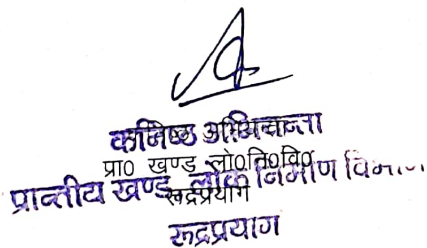 कनिष्ठ अभियन्ता
प्रा० खण्ड लो०नि०वि०
प्रान्तीय खण्ड लोक निर्माण विभाग
रूद्रप्रयाग
रूद्रप्रयाग